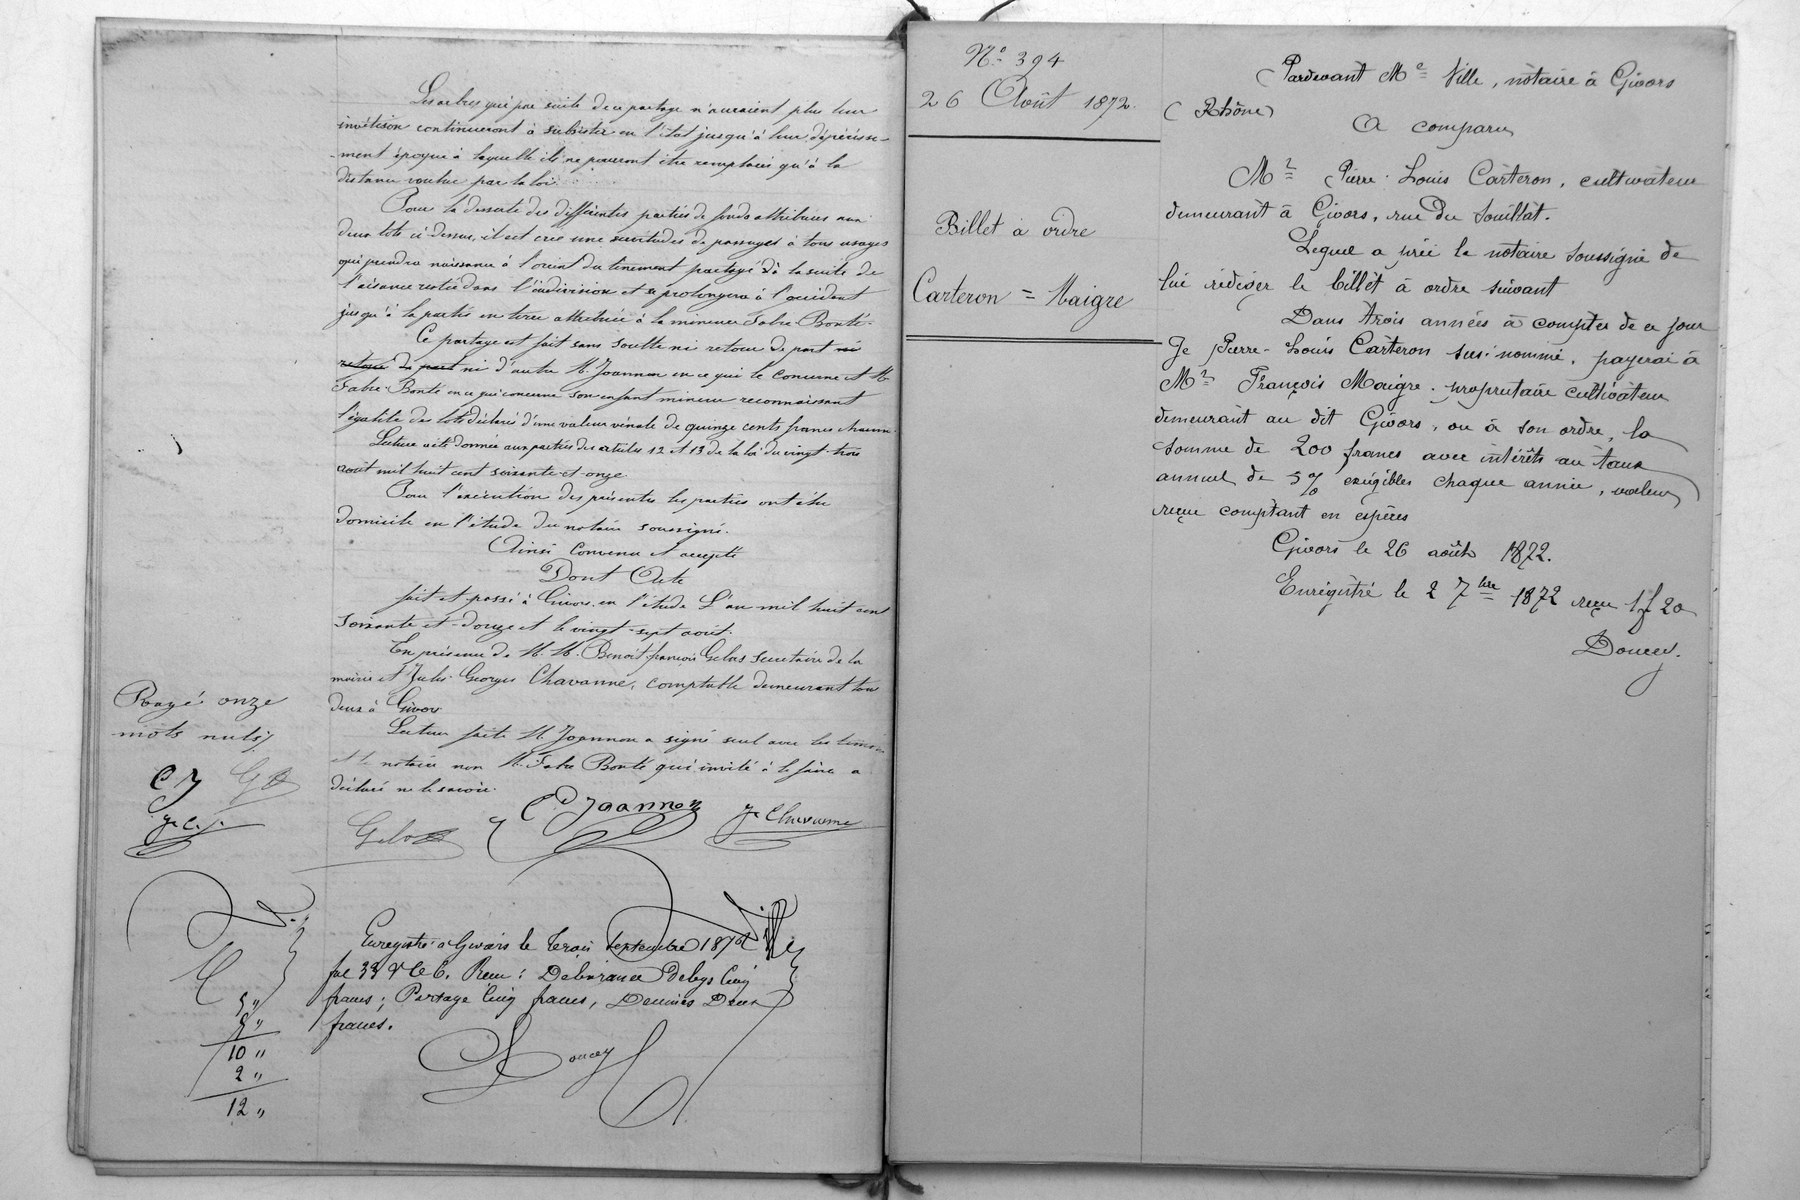 Les arbres qui par suite de ce partage n'auraient plus leur
invétison continueront à subister en l'état jusqu'à leur dépérisse-
-ment époque à laquelle ils ne pourront être remplacés qu'à la
distance voulue par la loi.
Pour la desserte des différentes parties de fonds attribuées aux
deux lots ci-dessus, il est créé une servitudes de passages à tous usages
qui prendra naissance à l'orient du tenement partagé à la suite de
l'aisance restée dans l'indivision et se prolongera à l'occident
jusqu'à la partie en terre attribuée à la mineure Fabre Bonté.
Ce partage est fait sans soulte ni retour de part ni
retour de part ni d'autre M. Joannon en ce qui le concerne et M.
Fabre-Bonté en ce qui concerne son enfant mineur reconnaissant
l'égalité des lots déclarés d'une valeur vénale de quinze cents francs chacun.
Lecture a été donnée aux parties des articles 12 et 13 de la loi du vingt-trois
août mil huit cent soixante-et-onze.
Pour l'exécution des présentes les parties ont élu
domicile en l'étude du notaire soussigné.
Ainsi convenu et accepté
Dont Acte
fait et passé à Givors, en l'étude L'an mil huit cent
soixante et-douze et le vingt-sept août.
En présence de M. M. Benoit-françois Gelas secretaire de la
mairie et Jules Georges Chavanne, comptable demeurant tous
deux à Givors
Lecture faite M. Joannon a signé seul avec les témoins
et le notaire non M. Fabre Bonté qui invité à le faire a
déclaré ne le savoir.
Rayé onze
mots nuls
CJ G
Gelas CJoannon Je Chavanne
Je C.
Ville
Enregistré à Givors le trois septembre 1872
fol 33 V° C 6. Reçu: Délivrance de legs Cinq
francs; Partage Cinq francs, Décimes Deux
francs.
Doucey
5 "
5 "
10 "
2 "
12 "
N.° 394
26 Août 1872.
Billet à ordre
Carteron = Maigre
Pardevant Me Ville, notaire à Givors
(Rhône)
A comparu
Mr Pierre-Louis Carteron, cultivateur
demeurant à Givors, rue du Souillat.
Lequel a prié le notaire soussigné de
lui rédiger le billet à ordre suivant
Dans trois années à compter de ce jour
Je Pierre-Louis Carteron sus-nommé, payerai à
Mr François Maigre, propriétaire cultivateur
demeurant au dit Givors, ou à son ordre, la
somme de 200 francs avec intérêts au taux
annuel de 5% exigibles chaque année, valeur
reçue comptant en espèces
Givors le 26 août 1872.
Enregistré le 2 7bre 1872 reçu 1f 20
Doucey.